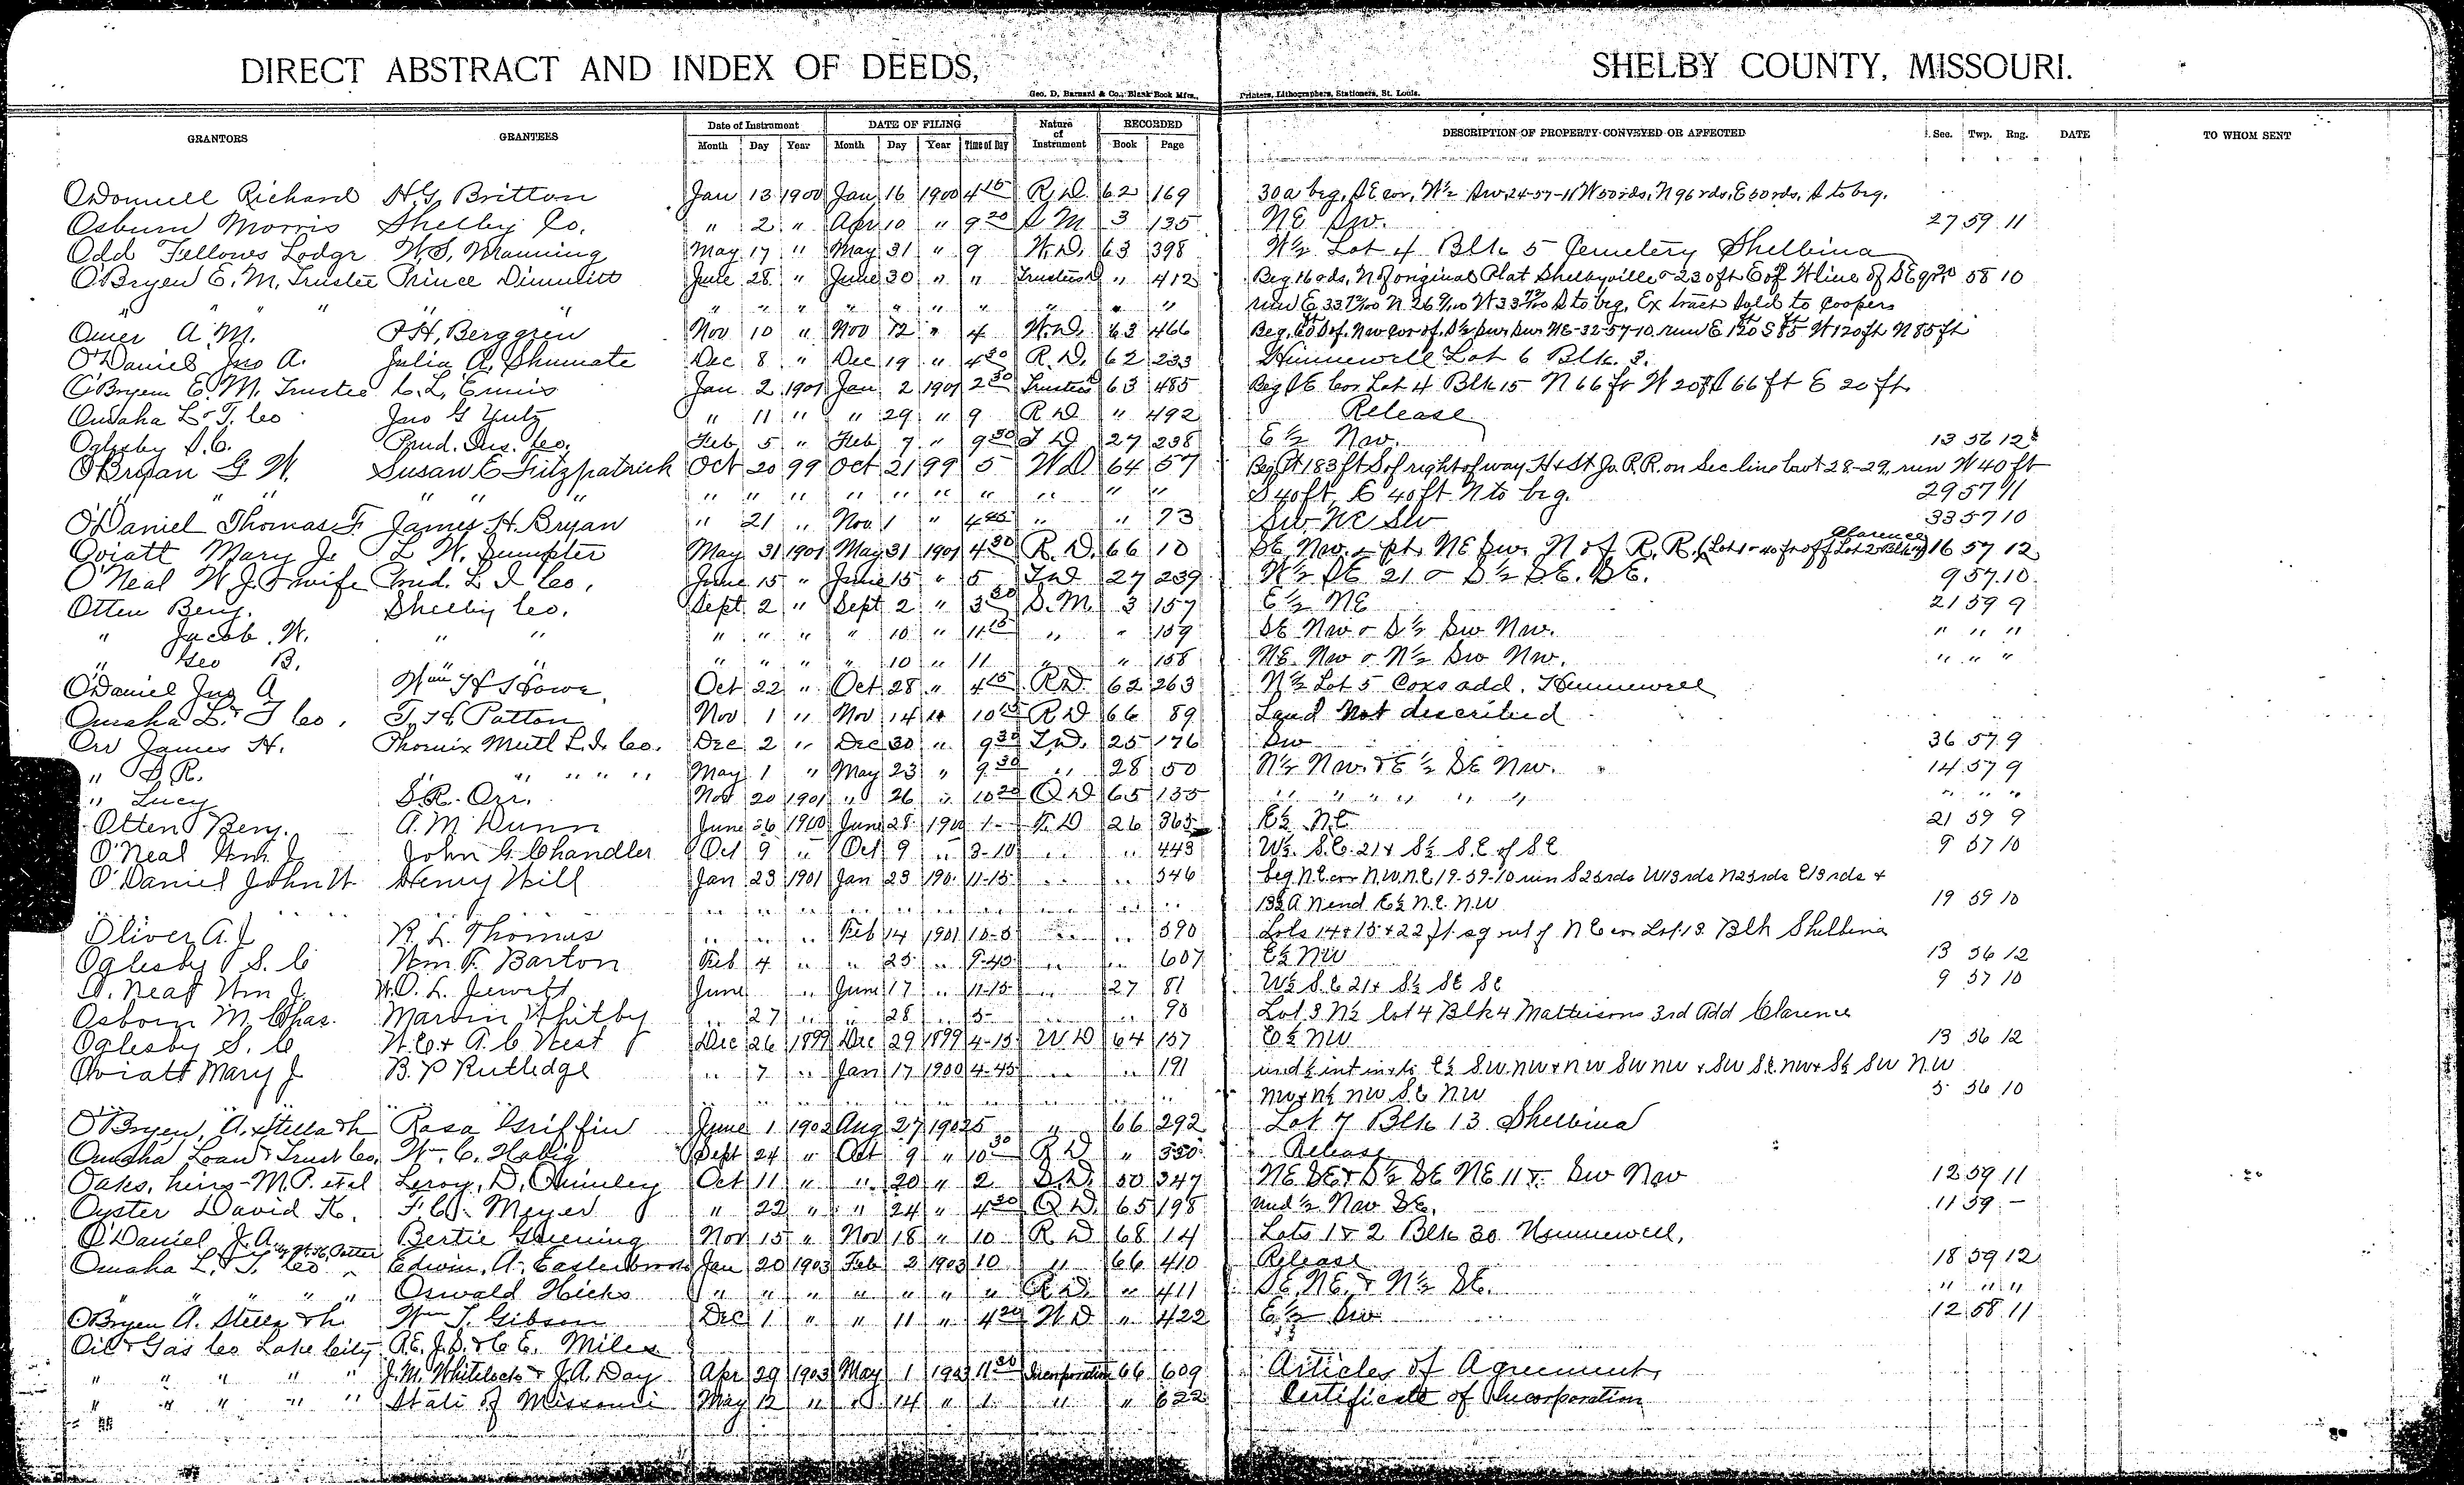 DIRECT ABSTRACT AND INDEX OF DEEDS, SHELBY COUNTY, MISSOURI.
Geo. D. Barnard & Co., Blank Book Mfrs., Printers, Lithographers, Stationers, St. Louis.
GRANTORS GRANTEES Date of Instrument DATE OF FILING Nature of Instrument RECORDED DESCRIPTION OF PROPERTY CONVEYED OR AFFECTED Sec. Twp. Rng. DATE TO WHOM SENT
Month Day Year Month Day Year Time of Day Book Page
O'Donnell Richard H.G. Britton Jan 13 1900 Jan 16 1900 4 15 R.D. 62 169 30a beg. SE cor. W½ Sw 24-57-11 W 50 rds, N 96 rds, E 50 rds, S to beg.
Osburn Morris Shelby Co. " 2 " Apr 10 " 9 20 S M 3 135 NE Sw. 27 59 11
Odd Fellows Lodge W.S. Manning May 17 " May 31 " 9 W.D. 63 398 W½ Lot 4 Blk 5 Cemetery Shelbina
O'Bryen E.M. Trustee Prince Dimmitt June 28 " June 30 " " Trustees D " 412 Beg 16 rds. N of original Plat Shelbyville & 230 ft E of W line of SE qr 30 58 10
" " " " " " " " " " " " " run E 33 N 26 W 33 S to beg. Ex tract sold to Coopers
Omer A.M. P.H. Berggren Nov 10 " Nov 12 " 4 W.D. 63 466 Beg. 60 ft S of Nw cor of S½ Sw Sw NE-32-57-10 run E 120 ft S 85 ft W 120 ft N 85 ft
O'Daniel Jno A. Julia A. Shumate Dec 8 " Dec 19 " 4 30 R.D. 62 233 Hunnewell Lot 6 Blk. 3.
O'Bryen E.M. Trustee C.L. Ennis Jan 2 1901 Jan 2 1901 2 30 Trustees D 63 485 Beg SE Cor Lot 4 Blk 15 N 66 ft W 20 ft S 66 ft E 20 ft.
Omaha L & T. Co Jno G Yutz " 11 " " 29 " 9 R D " 492 Release
Oglesby S.C. Prud. Ins. Co. Feb 5 " Feb 7 " 9 30 T D 27 238 E½ Nw. 13 56 12
O'Bryan G W. Susan E Fitzpatrick Oct 20 99 Oct 21 99 5 W D 64 57 Beg Pt 183 ft S of right of way H & St Jo. R.R. on Sec line bet 28-29, run W 40 ft
" " " " " " " " " " " " " " " " " S 40 ft, E 40 ft N to beg. 29 57 11
O'Daniel Thomas F. James H. Bryan " 21 " Nov 1 " 4 45 " " 73 Sw NE Sw 33 57 10
Oviatt Mary J. L W. Sumpter May 31 1901 May 31 1901 4 30 R.D. 66 10 SE Nw & pt. NE Sw N of R.R. (Lot 1 & 40 ft off Lot 2 Blk 7) Clarence 16 57 12
O'Neal W.J. & wife Prud. L I Co. June 15 " June 15 " 5 T.D 27 239 W½ SE 21 & S½ SE. SE. 9 57 10
Otten Benj. Shelby Co. Sept 2 " Sept 2 " 3 30 S.M. 3 157 E½ NE 21 59 9
" Jacob W. " " " " " " 10 " 11 15 " " 159 SE Nw & S½ Sw Nw. " " "
" Geo B. " " " " " " 10 " 11 " " 158 NE Nw & N½ Sw Nw. " " "
O'Daniel Jno A Wm H Howe Oct 22 " Oct 28 " 4 15 R.D. 62 263 N½ Lot 5 Coxs add. Hunnewell
Omaha L & T Co. T.H. Patton Nov 1 " Nov 14 " 10 15 R D 66 89 Land Not described
Orr James H. Phoenix Mutl L.I. Co. Dec 2 " Dec 30 " 9 30 T.D. 25 176 Sw 36 57 9
" S.R. " " " " " May 1 " May 23 " 9 30 " 28 50 N½ Nw. & E½ SE Nw. 14 57 9
" Lucy S.R. Orr. Nov 20 1901 " 26 " 10 20 Q D 65 135 " " " " " " " " "
Otten Benj. A.M. Dunn June 26 1900 June 28 1900 1- T. D 26 365 E½ NE 21 59 9
O'Neal Wm J. John G. Chandler Oct 9 " Oct 9 " 3-10 " " 443 W½ S.E. 21 & S½ S.E of S.E 9 57 10
O'Daniel John W Henry Hill Jan 23 1901 Jan 23 190. 11-15 " " 546 beg N.E cor N.W.N.E 19-59-10 run S 23 rds W 13 rds N 23 rds E 13 rds &
" " " " " " " " " " " " " " 13½ A N end E½ N.E. N.W 19 59 10
Oliver A.J R. L. Thomas " " " Feb 14 1901 10-5 " " 590 Lots 14 & 15 & 22 ft sq out of N E cor Lot 13 Blk Shelbina
Oglesby S. C Wm F. Barton Feb 4 " " 25 " 9-40 " " 607 E½ NW 13 56 12
O'Neal Wm J. W.O.L. Jewett June " June 17 " 11-15 " 27 81 W½ S.E 21 & S½ SE SE 9 57 10
Osborn M. Chas. Marvin Whitby " 27 " " 28 " 5- " " 90 Lot 3 N½ lot 4 Blk 4 Mattersons 3rd Add Clarence
Oglesby S. C W.C. & A. C West Dec 26 1899 Dec 29 1899 4-15 W D 64 157 E½ NW 13 56 12
Oviatt Mary J B. P Rutledge " 7 " Jan 17 1900 4-45 " " 191 und ½ int in & to E½ S.W. NW & NW SW NW & SW S.E. NW & S½ SW N.W
" " " " " " " " " " " NW & N½ NW S.E NW 5 56 10
O'Bryen, A. Stella & h Rosa Griffin June 1 1902 Aug 27 1902 5 " 66 292 Lot 7 Blk 13 Shelbina
Omaha Loan & Trust Co. W. C. Habig Sept 24 " Oct 9 " 10 30 R D " 330 Release
Oaks, heirs-M.P. et al Leroy, D, Quinley Oct 11 " " 20 " 2 S.D. 50 347 NE SE & S½ SE NE 11 & Sw Nw 12 59 11
Oyster David K. F.C. Meyer " 22 " " 24 " 4 30 Q D. 65 198 und ½ Nw SE. 11 59 -
O'Daniel J.A. Bertie Greening Nov 15 " Nov 18 " 10 R D 68 14 Lots 1 & 2 Blk 30 Hunnewell,
Omaha L. T. Co by W.H. Potter Edwin, A, Easterbrook Jan 20 1903 Feb 2 1903 10 " 66 410 Release 18 59 12
" " " " Oswald Hicks " " " " " " " R.D. " 411 SE. NE. & N½ SE. " " "
O'Bryen A. Stella & h. Wm T. Gibson Dec 1 " " 11 " 4 20 W D " 422 E½ Sw 12 58 11
Oil & Gas Co Lake City A.E. J.S. & C E. Miles
" " " " " J.M. Whitelock & J.A. Day Apr 29 1903 May 1 1903 11 30 Incorporation 66 609 Articles of Agreement,
" " " " " State of Missouri May 12 " " 14 " 1 " " 622 Certificate of Incorporation